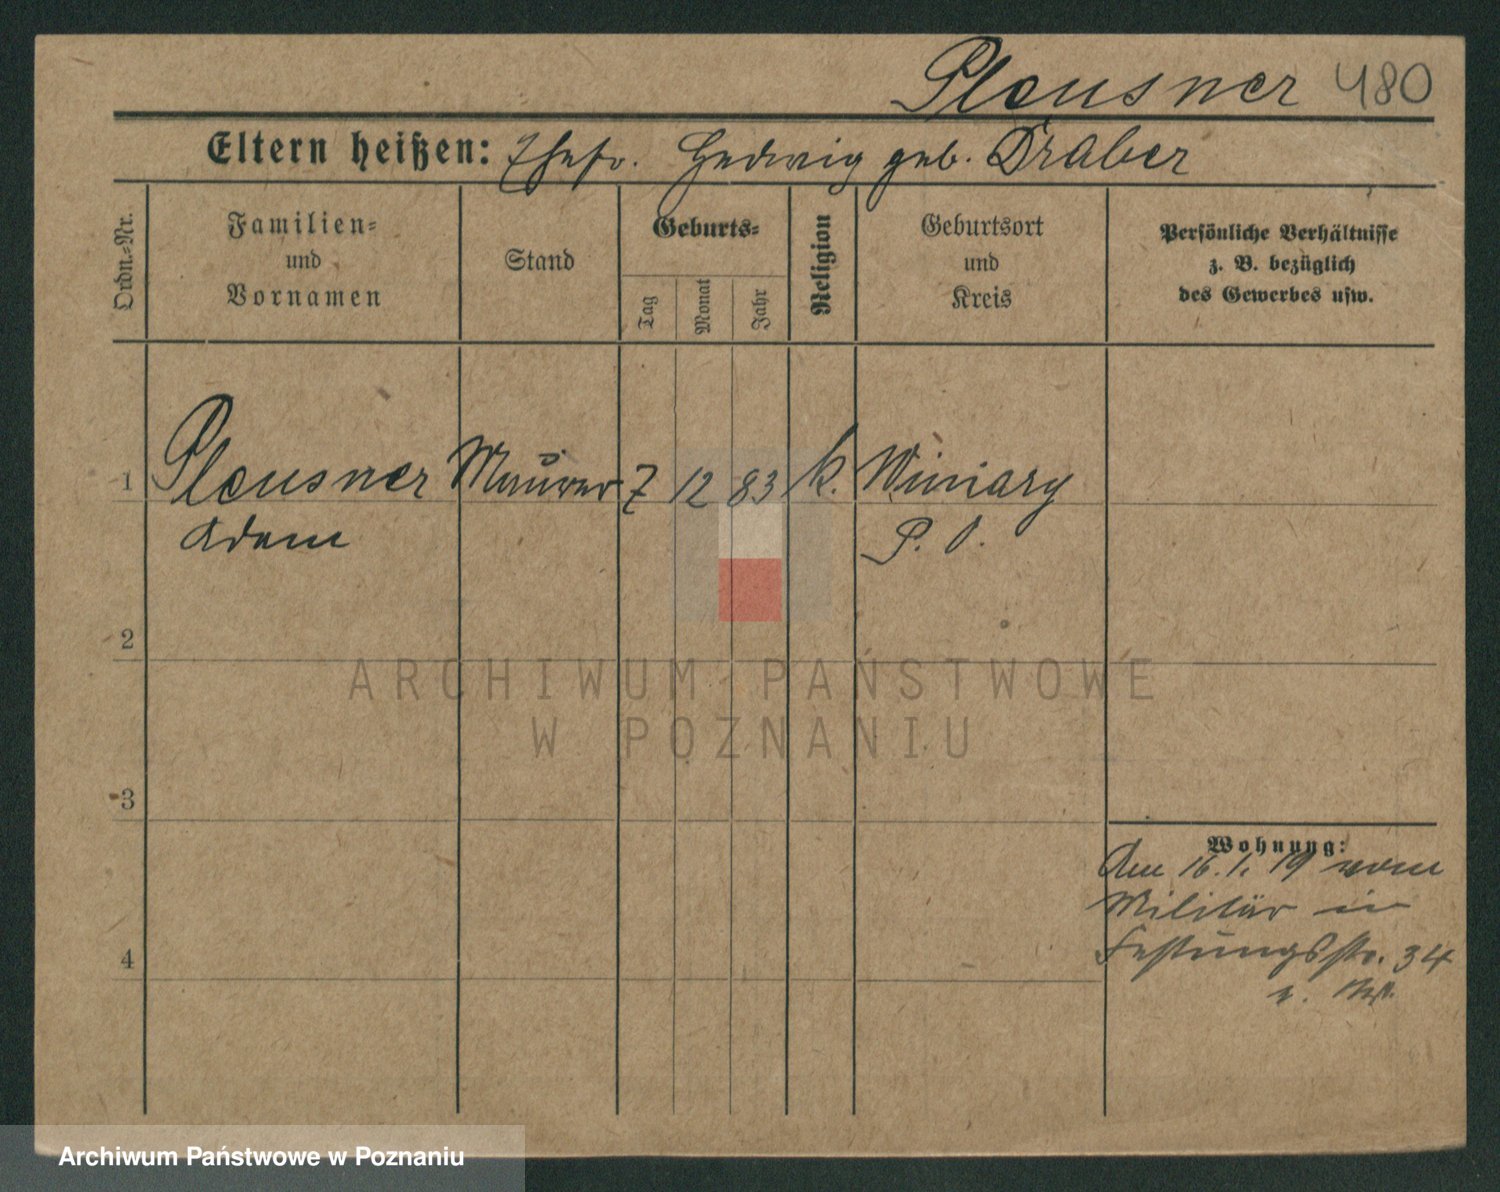 Pleusner 480
Eltern heißen: Ehefr. Hedwig geb. Draber
Ordn.-Nr.
Familien-
und
Vornamen
Stand
Geburts-
Tag
Monat
Jahr
Religion
Geburtsort
und
Kreis
Persönliche Verhältnisse
z. B. bezüglich
des Gewerbes usw.
1 Pleusner Maurer 7 12 83 k. Winiary
Adam P. O.
2
ARCHIWUM PAŃSTWOWE
W POZNANIU
3
Wohnung:
Am 16.1.19 vom
Militär in
Festungsstr. 34
4
Archiwum Państwowe w Poznaniu